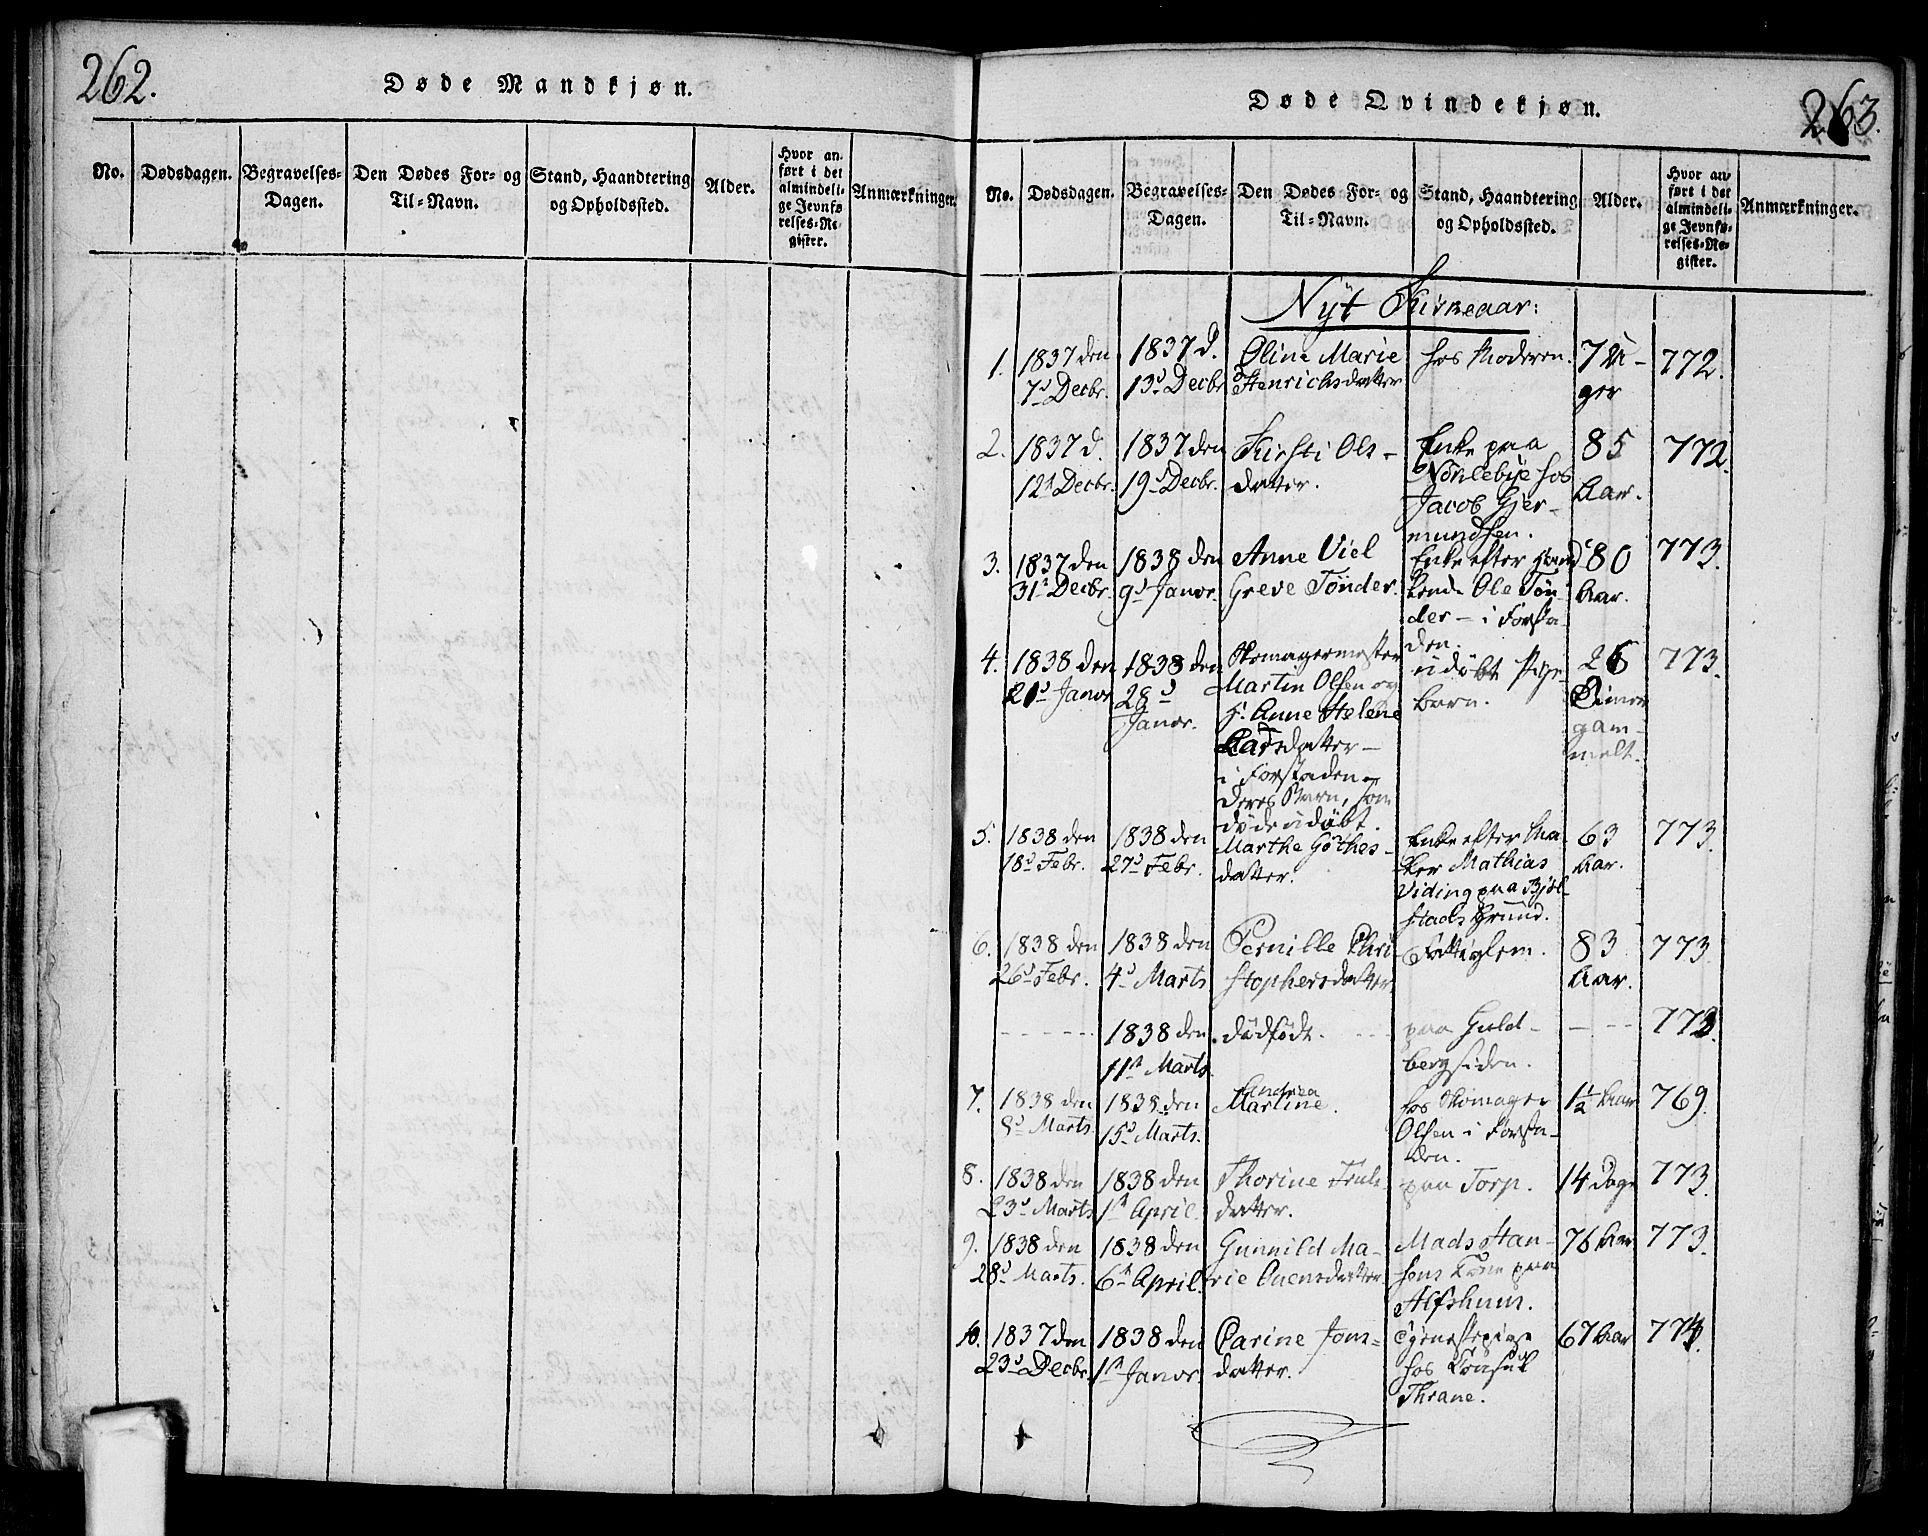 262.
Døde Mandkjøn.
No.
Dødsdagen.
Begravelses-
Dagen.
Den Dødes For- og
Til-Navn.
Stand, Haandtering
og Opholdssted.
Alder.
Hvor an-
ført i det
almindeli-
ge Jevnfø-
relses-Re-
gister.
Anmærkninger.
263.
Døde Qvindekjøn.
No.
Dødsdagen.
Begravelses-
Dagen.
Den Dødes For- og
Til-Navn.
Stand, Haandtering
og Opholdssted.
Alder.
Hvor an-
ført i det
almindeli-
ge Jevnfø-
relses-Re-
gister.
Anmærkninger.
Nyt Kirkeaar:
1.
1837 den
7d Decbr.
1837 d.
13d Decbr
Oline Marie
Henrichsdatter
hos Moderen.
7 U-
ger
772.
2.
1837 d.
12t Decbr.
1837 den
19d Decbr.
Kirsti Ols-
datter.
Enke paa
Nöklebye hos
Jacob Gjer-
mundsen.
85
Aar.
772.
3.
1837 den
31t Decbr.
1838 den
9d Janor.
Anne Viel
Greve Tönder.
Enke efter
Ole Tön-
der - i Forsta-
den.
80
Aar.
773.
4.
1838 den
21d Janor
1838 den
28d
Janor.
Skomagermester
Martin Olsen og
h. Anne Helene
Larsdatter -
i Forstaden -
deres Barn, som
döde udöbt.
udöbt Pige-
barn.
26
Timer
gam-
melt.
773.
5.
1838 den
18d Febr.
1838 den
27d Febr.
Marthe Göthes-
datter.
Enke efter
Mathias
Viding paa
stads Grund.
63
Aar.
773.
6.
1838 den
26d Febr.
1838 den
4d Marts
Pernille Chri-
stophersdatter
Fattiglem.
83
Aar.
773.
1838 den
11t Marts.
dödfödt.
paa Guld-
bergsiden.
773.
7.
1838 den
8d Marts.
1838 den
15d Marts.
Andrea
Martine.
hos Skomager
Olsen i Forsta-
den.
1½ Aar
769.
8.
1838 den
23d Marts
1838 den
1t April.
Thorine Truls-
datter.
paa Torp.
14 Dage
773.
9.
1838 den
28d Marts.
1838 den
6t April.
Gunnild Ma-
rie Evensdatter.
Mads Han-
sens Kone paa
Alfshuus.
76 Aar
773.
10.
1837 den
23d Decbr.
1838 den
1t Janor
Carine Jons-
datter.
Tjenestepige
hos Consul
Thrane.
67 Aar
774.